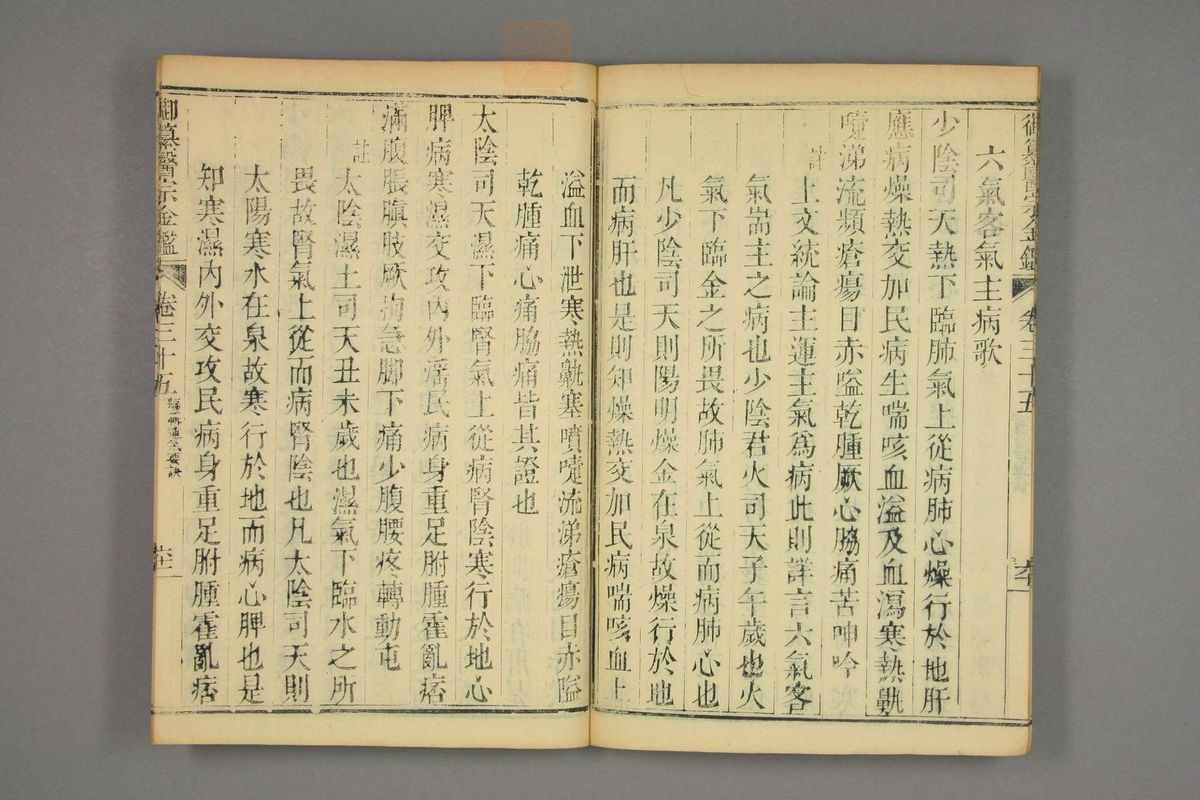 御纂醫宗金鑑 卷三十五
六氣客氣主病歌
少陰司天熱下臨肺氣上從病肺心燥行於地肝
應病燥熱交加民病生喘咳血溢及血瀉寒熱鼽
嚏涕流類瘡瘍目赤嗌乾腫厥心脇痛苦呻吟
註
上文統論主運主氣爲病此則詳言六氣客
氣耑主之病也少陰君火司天子午歲也火
氣下臨金之所畏故肺氣上從而病肺心也
凡少陰司天則陽明燥金在泉故燥行於地
而病肝也是則知燥熱交加民病喘咳血上
溢血下泄寒熱鼽塞噴嚏流涕瘡瘍目赤嗌
乾腫痛心痛脇痛皆其證也
太陰司天濕下臨腎氣上從病腎陰寒行於地心
脾病寒濕交攻內外淫民病身重足胕腫霍亂痞
滿腹脹䐜肢厥拘急腳下痛少腹腰疼轉動屯
註
太陰濕土司天丑未歲也濕氣下臨水之所
畏故腎氣上從而病腎陰也凡太陰司天則
太陽寒水在泉故寒行於地而病心脾也是
知寒濕內外交攻民病身重足胕腫霍亂痞
御纂醫宗金鑑 卷三十五 編輯運氣要訣